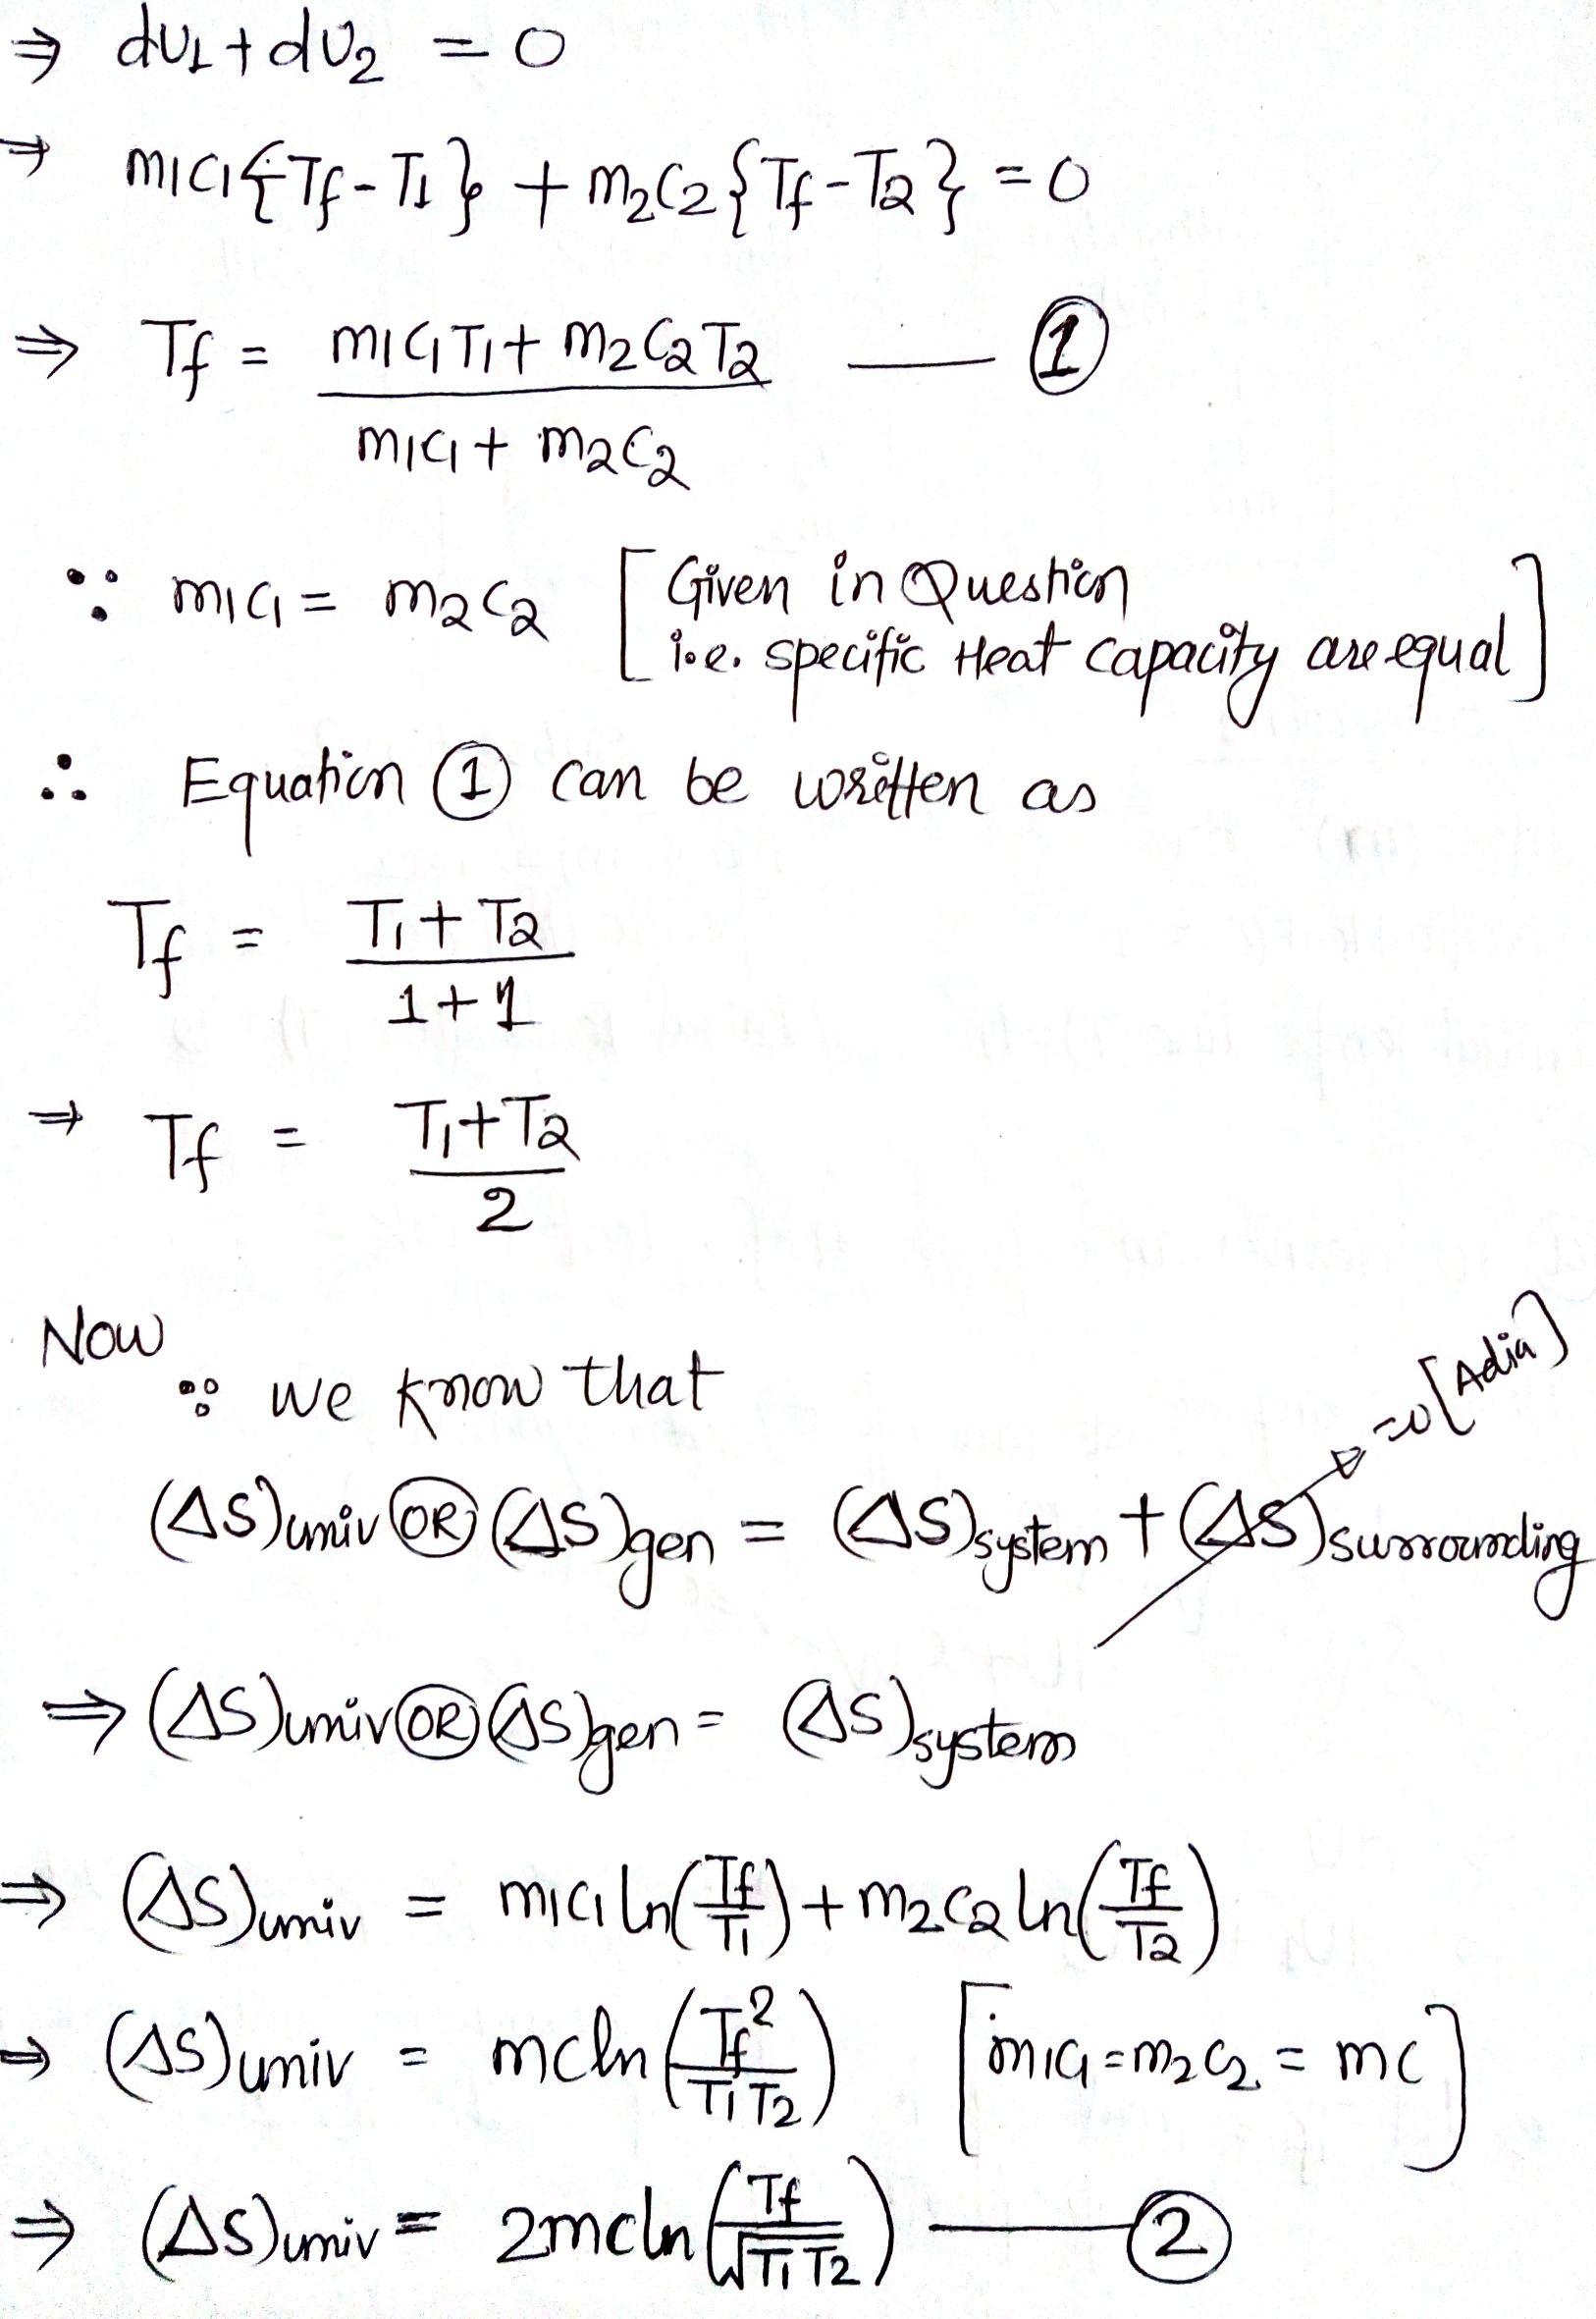 ⇒ dU1 + dU2 = 0
⇒ m1c1{Tf - T1} + m2c2{Tf - T2} = 0
⇒ Tf = (m1c1T1 + m2c2T2) / (m1c1 + m2c2) —— ①
∵ m1c1 = m2c2 [Given in Question
i.e. specific Heat capacity are equal]
∴ Equation ① can be written as
Tf = (T1 + T2) / (1 + 1)
⇒ Tf = (T1 + T2) / 2
Now
∵ we know that
(ΔS)univ OR (ΔS)gen = (ΔS)system + (ΔS)surrounding → =0 [Adia]
⇒ (ΔS)univ OR (ΔS)gen = (ΔS)system
⇒ (ΔS)univ = m1c1 ln(Tf/T1) + m2c2 ln(Tf/T2)
⇒ (ΔS)univ = mc ln(Tf²/T1T2) [∵ m1c1 = m2c2 = mc]
⇒ (ΔS)univ = 2mc ln(Tf/√T1T2) —— ②